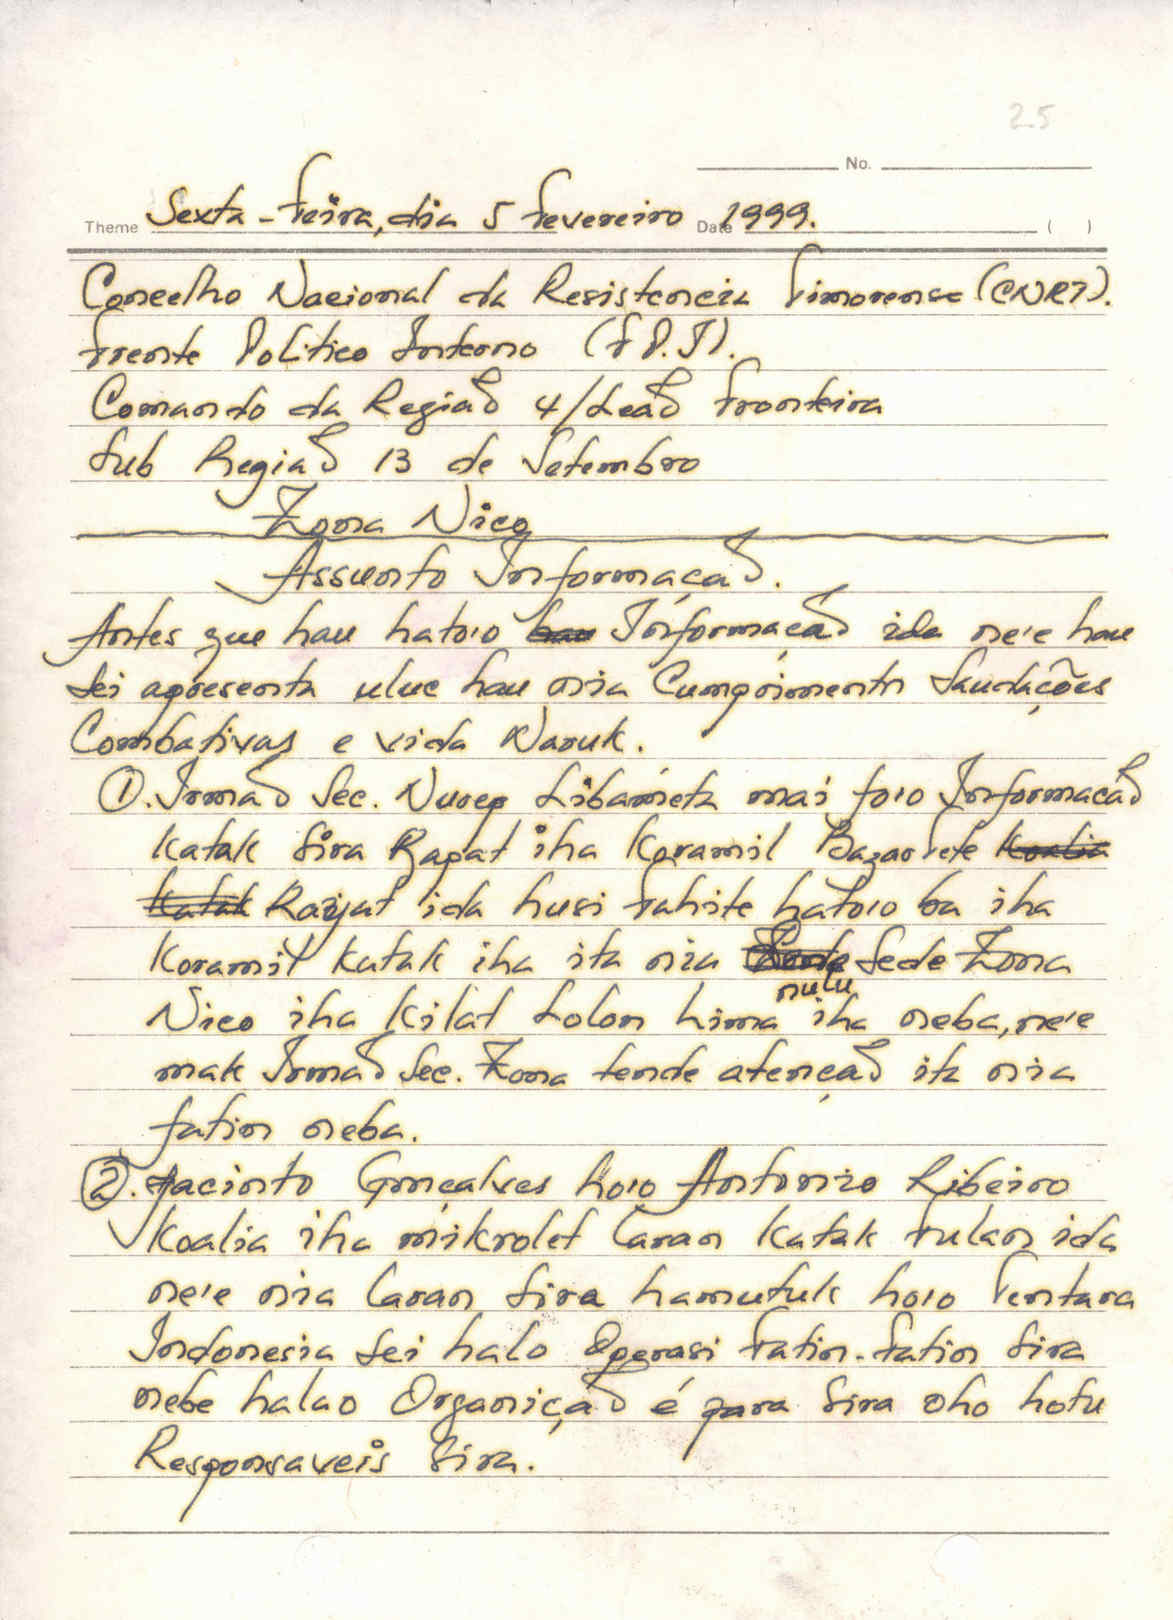 25
No.
Theme Sexta-feira, dia 5 fevereiro Date 1999. ( )
Concelho Nacional da Resistencia Timorense (CNRT).
Frente Politico Interno (FP.I).
Comando da Regiaõ 4/Leaõ Fronteira
Sub Regiaõ 13 de Setembro
Zona Nico
Assunto Informaçaõ.
Antes que hau hato'o hau Informaçaõ ida ne'e hau
sei apresenta uluc hau nia Cumprimentos Saudações
Combativas e vida Naruk.
1. Irmaõ Sec. Nurep Libámeta mai fo'o Informacaõ
katak sira Rapat iha Koramil Bazartete koalia
katak Raiyat ida husi Fahite hato'o ba iha
Koramil katak iha ita nia Sede Zona
Nico iha kilat Lolon Lima nulu iha neba, ne'e
mak Irmaõ Sec. Zona tende atençaõ ita nia
fatin neba.
2. Jacinto Gonçalves ho'o Antonizo Ribeiro
koalia iha mikrolet laran katak Fulan ida
ne'e nia laran sira hamutuk ho'o Tentara
Indonesia sei halo Operasi Fatin-Fatin sira
nebe halao Organiçaõ é para sira oho hotu
Responsaveis sira.